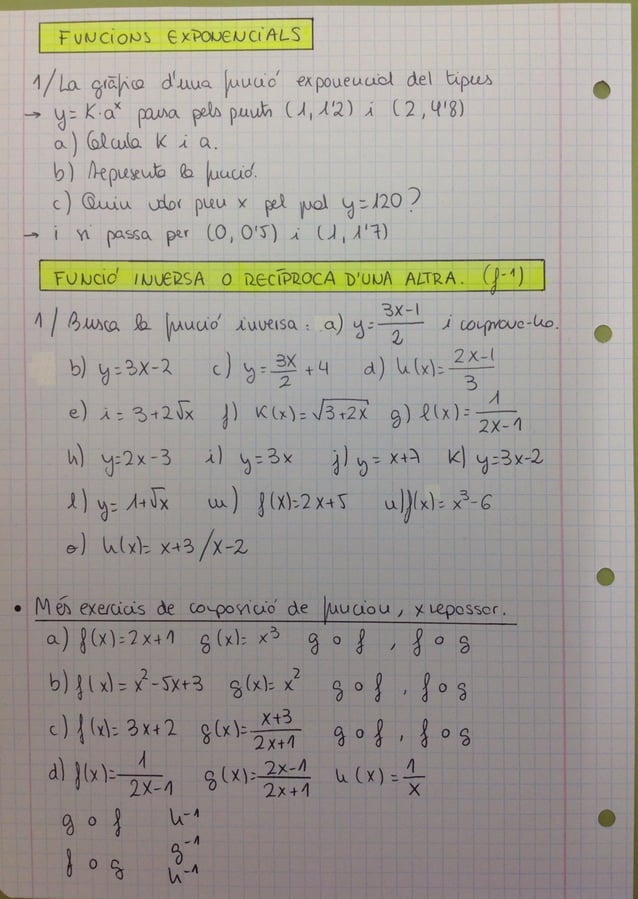 FUNCIONS EXPONENCIALS
1/ La gràfica d'una funció exponencial del tipus
→ y = K·aˣ passa pels punts (1, 1'2) i (2, 4'8)
a) Calcula K i a.
b) Representa la funció.
c) Quin valor pren x pel qual y=120?
→ i si passa per (0, 0'5) i (1, 1'7)
FUNCIÓ INVERSA O RECÍPROCA D'UNA ALTRA. (f-1)
1/ Busca la funció inversa: a) y = (3x-1)/2 i comprova-ho.
b) y=3x-2 c) y= 3x/2 +4 d) h(x)= (2x-1)/3
e) i = 3+2√x f) K(x)= √(3+2x) g) l(x)= 1/(2x-1)
h) y=2x-3 i) y=3x j) y= x+7 k) y=3x-2
l) y= 1+√x m) f(x)=2x+5 n) f(x)= x³-6
o) h(x)= x+3/x-2
• Més exercicis de composició de funcions, x repassar.
a) f(x)=2x+1 g(x)= x³ g o f , f o g
b) f(x)= x²-5x+3 g(x)= x² g o f , f o g
c) f(x)= 3x+2 g(x)= (x+3)/(2x+1) g o f , f o g
d) f(x)= 1/(2x-1) g(x)= (2x-1)/(2x+1) h(x) = 1/x
g o f h⁻¹
f o g g⁻¹
h⁻¹